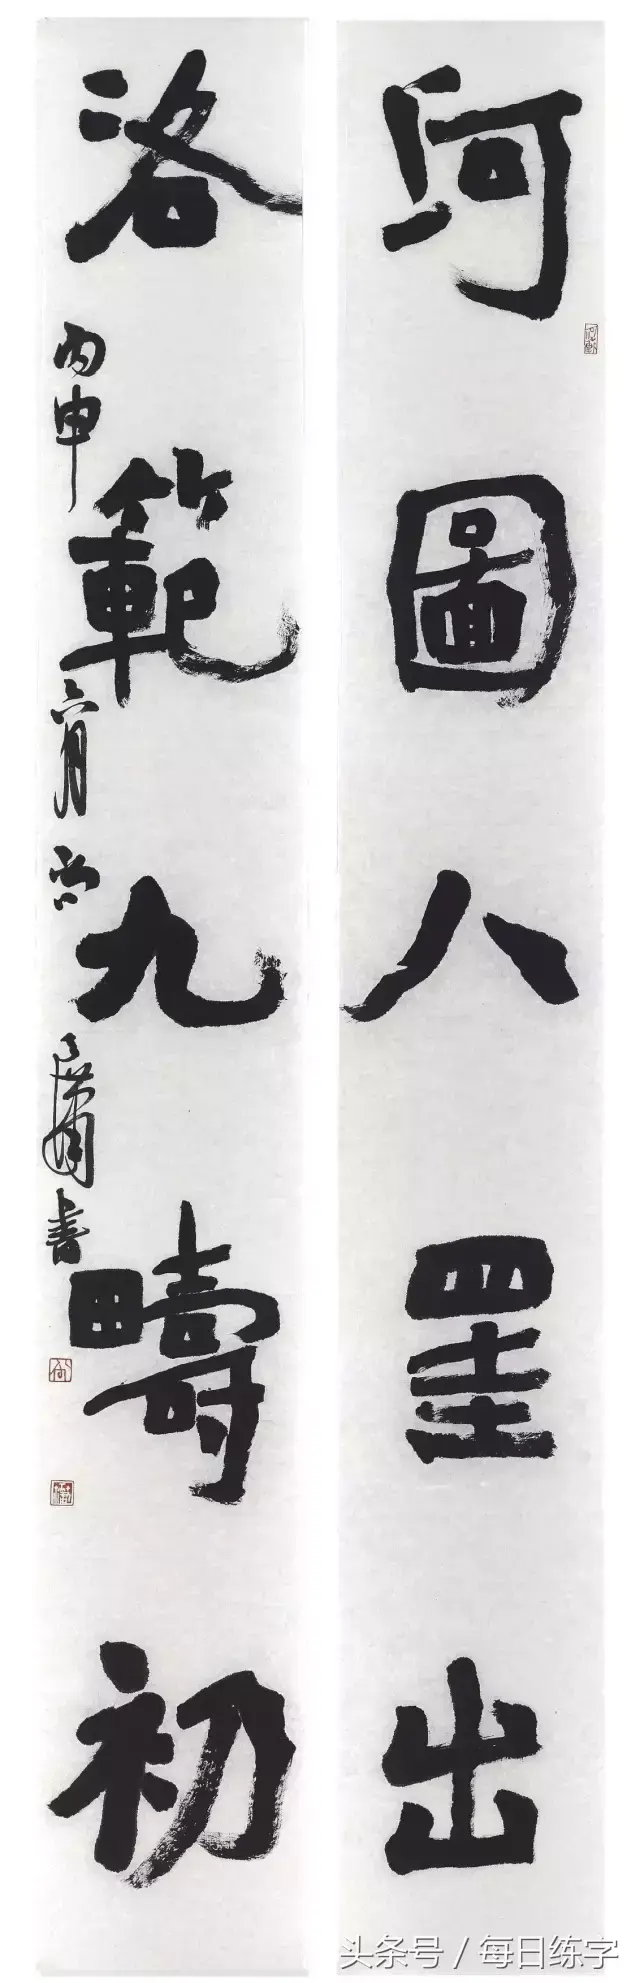 河圖八罣出
洛範九疇初
丙申六月
書
头条号 / 每日练字